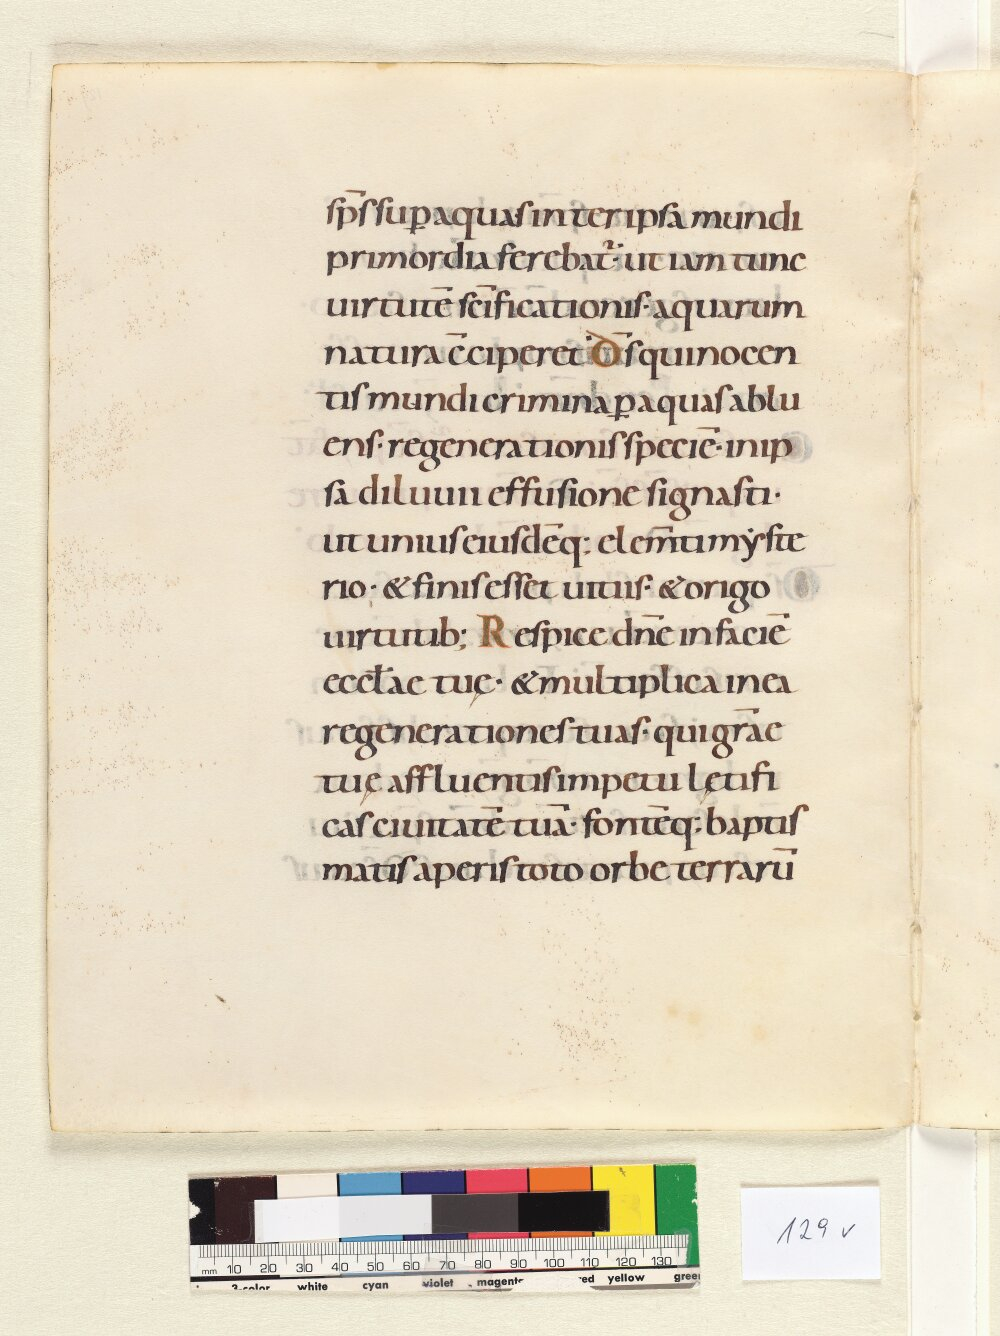 sp̄s sup̱ aquas inter ipsa mundi
primordia ferebat᷑· ut iam tunc
uirtutē sc̄ificationis· aquarum
natura c̄ciperet· D̄s qui nocen
tis mundi crimina p̱ aquas ablu
ens· regenerationis speciē· in ip
sa diluuii effusione signasti·
ut unius eiusdēq; elem̄ti mẏste
rio· & finis esset uitiis· & origo
uirtutib; Respice dn̄e in faciē
eccl̄ae tuę· & multiplica in ea
regenerationes tuas· qui gr̄ae
tuę affluentis impetu lętifi
cas ciuitatē tuā· fontēq; baptis
matis aperis toto orbe terrarū
mm 10 20 30 40 50 60 70 80 90 100 110 120 130
3-color white cyan violet magenta red yellow green
129 v